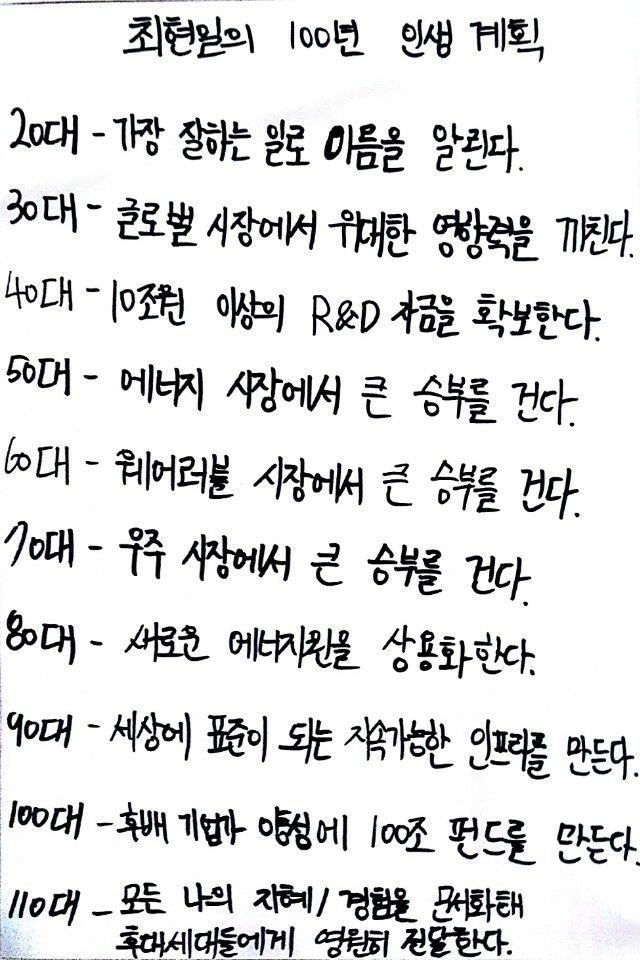 최현일의 100년 인생 계획
20대 - 가장 잘하는 일로 이름을 알린다.
30대 - 글로벌 시장에서 위대한 영향력을 끼친다.
40대 - 10조원 이상의 R&D 자금을 확보한다.
50대 - 에너지 시장에서 큰 승부를 건다.
60대 - 웨어러블 시장에서 큰 승부를 건다.
70대 - 우주 시장에서 큰 승부를 건다.
80대 - 새로운 에너지원을 상용화한다.
90대 - 세상에 표준이 되는 지속가능한 인프라를 만든다.
100대 - 후배 기업가 양성에 100조 펀드를 만든다.
110대 - 모든 나의 지혜/경험을 문서화해
후대세대들에게 영원히 전달한다.